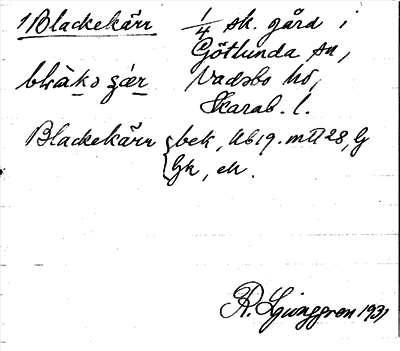 1 Blackekärr 1/4 sk. gård i
Götlunda sn,
Vadsbo hd,
Skarab. l.
Blackekärr { bek, Ub 19. m
hk, ek.
R. Ljunggren 1931